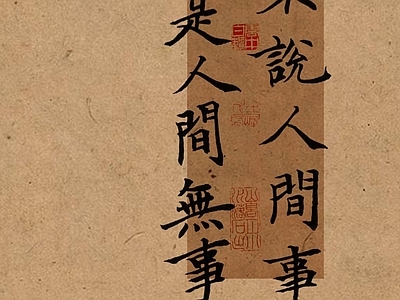 說人間事
是人間無事